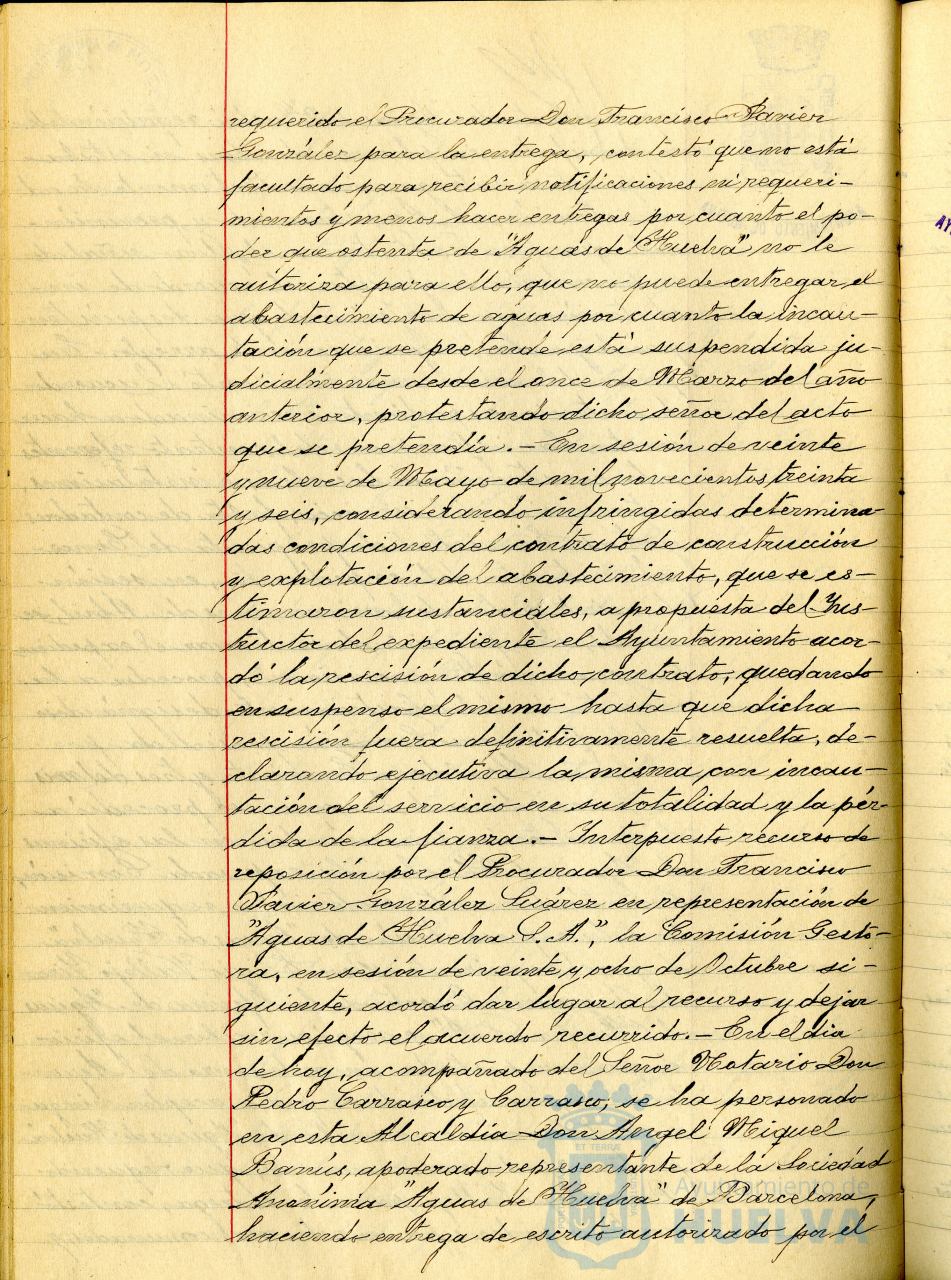 requerido el Procurador Don Francisco Javier
González para la entrega, contestó que no está
facultado para recibir notificaciones ni requeri-
mientos y menos hacer entregas por cuanto el po-
der que ostenta de "Aguas de Huelva" no le
autoriza para ello, que no puede entregar el
abastecimiento de aguas por cuanto la incau-
tación que se pretende está suspendida ju-
dicialmente desde el once de Marzo del año
anterior, protestando dicho señor del acto
que se pretendía.- En sesión de veinte
y nueve de Mayo de mil novecientos treinta
y seis, considerando infringidas determina-
das condiciones del contrato de construcción
y explotación del abastecimiento, que se es-
timaron sustanciales, a propuesta del Yns-
tructor del expediente el Ayuntamiento acor-
dó la rescisión de dicho contrato, quedando
en suspenso el mismo hasta que dicha
rescisión fuera definitivamente resuelta, de-
clarando ejecutiva la misma con incau-
tación del servicio en su totalidad y la pér-
dida de la fianza.- Ynterpuesto recurso de
reposición por el Procurador Don Francisco
Javier González Suárez en representación de
"Aguas de Huelva S.A.", la Comisión Gesto-
ra, en sesión de veinte y ocho de Octubre si-
guiente, acordó dar lugar al recurso y dejar
sin efecto el acuerdo recurrido.- En el dia
de hoy, acompañado del Señor Notario Don
Pedro Carrasco y Carrasco, se ha personado
en esta Alcaldía Don Angel Miquel
Banús, apoderado representante de la Sociedad
Anónima "Aguas de Huelva" de Barcelona,
haciendo entrega de escrito autorizado por el
Ayuntamiento de
HUELVA